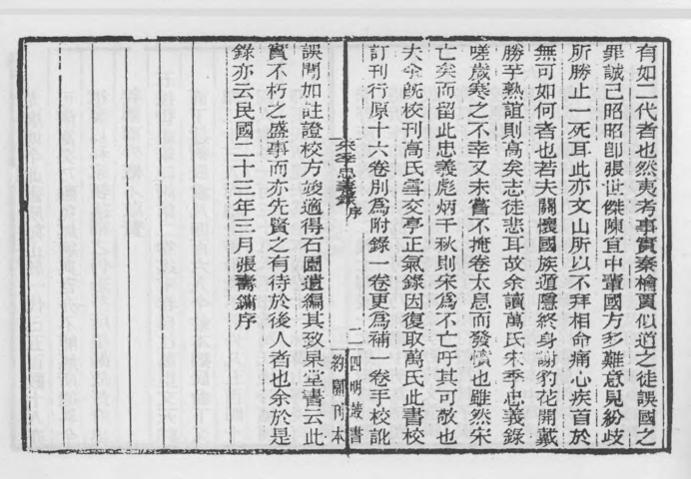 有如二代者也然夷考事實秦檜賈似道之徒誤國之
罪誠已昭昭卽張世傑陳宜中輩國方多難意見紛歧
所勝止一死耳此亦文山所以不拜相命痛心疾首於
無可如何者也若夫關懷國族遁隱終身謝豹花開戴
勝芋熟誼則高矣志徒悲耳故余讀萬氏宋季忠義錄
嗟歲寒之不幸又未嘗不掩卷太息而發憤也雖然宋
亡矣而留此忠義彪炳千秋則宋爲不亡吁其可敬也
夫余旣校刊高氏雪交亭正氣錄因復取萬氏此書校
訂刊行原十六卷別爲附錄一卷更爲補一卷手校訛
宋季忠義錄 序
二 四明叢書
約園刊本
誤間加註證校方竣適得石園遺編其致杲堂書云此
實不朽之盛事而亦先賢之有待於後人者也余於是
錄亦云民國二十三年三月張壽鏞序